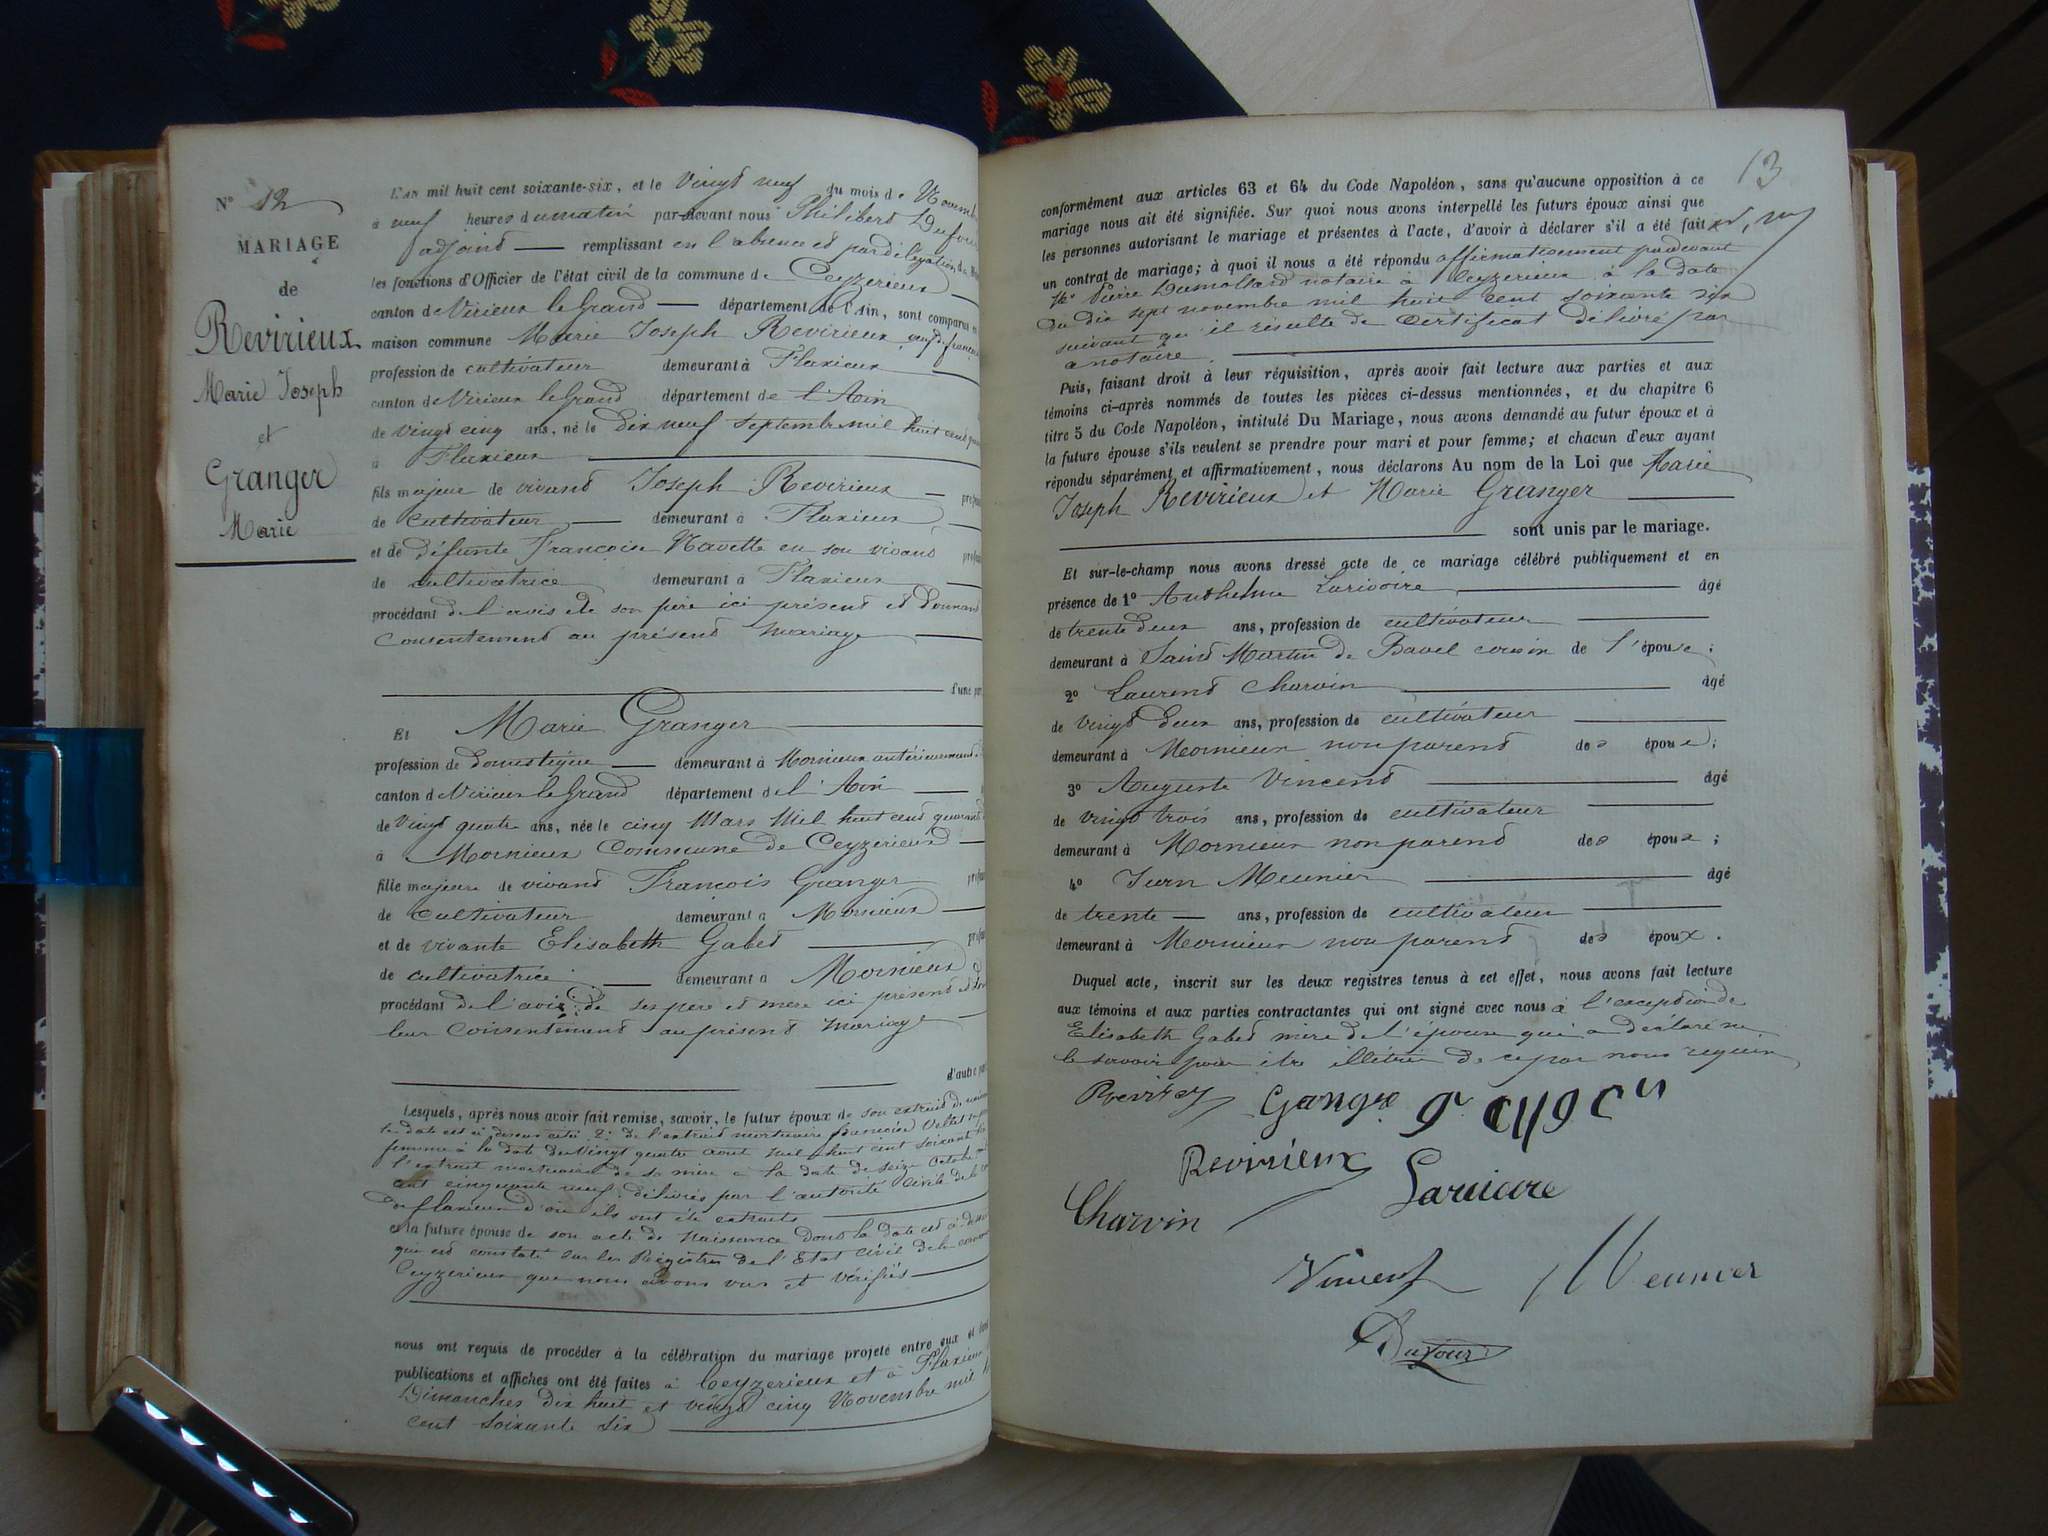 N° 12
MARIAGE
de
Revirieux
Marie Joseph
et
Granger
Marie
L'an mil huit cent soixante-six, et le Vingt neuf du mois de Novembre
à neuf heures du matin par-devant nous Philibert Dufour
adjoint — remplissant en l'absence et par délégation du
les fonctions d'Officier de l'état civil de la commune de Ceyzerieux
canton de Virieux le Grand — département de l'Ain, sont comparus en
maison commune Marie Joseph Revirieux veuf de
profession de cultivateur demeurant à Flaxieux
canton de Virieux le Grand département de l'Ain
de Vingt cinq ans, né le dix neuf Septembre mil huit cent
à Flaxieux
fils majeur de vivant Joseph Revirieux —
de cultivateur — demeurant à Flaxieux
et de défunte Francoise Navette en son vivant
de cultivatrice demeurant à Flaxieux
procédant de l'avis de son père ici présent et donnant
Consentement au présent Mariage
d'une part
Et Marie Granger
profession de domestique — demeurant à Mornieux antérieurement
canton de Virieux le Grand département de l'Ain —
de Vingt quatre ans, née le cinq Mars Mil huit cent
à Mornieux Commune de Ceyzerieux —
fille majeure de vivant Francois Granger
de cultivateur demeurant à Mornieux
et de vivante Elisabeth Gabet
de cultivatrice — demeurant à Mornieux
procédant de l'avis de ses père et mère ici présent et
leur Consentement au présent Mariage
d'autre part
Lesquels, après nous avoir fait remise, savoir, le futur époux de son extrait de
la date est ci dessus cité 2° de l'extrait mortuaire francoise
femme à la date du Vingt quatre aout mil huit cent soixante
l'extrait mortuaire de sa mère à la date de seize Octobre
cent cinquante neuf, délivrés par l'autorité Civile de la
de flaxieux d'où ils ont été extraits
et la future épouse de son acte de Naissance dont la date est
qui est constaté sur les Registres de l'Etat civil de la
Ceyzerieux que nous avons vus et vérifiés
nous ont requis de procéder à la célébration du mariage projeté entre eux et
publications et affiches ont été faites à Ceyzerieux et à Flaxieux
Dimanches dix huit et vingt cinq Novembre mil
cent Soixante Six
13
conformément aux articles 63 et 64 du Code Napoléon, sans qu'aucune opposition à ce
mariage nous ait été signifiée. Sur quoi nous avons interpellé les futurs époux ainsi que
les personnes autorisant le mariage et présentes à l'acte, d'avoir à déclarer s'il a été fait
un contrat de mariage; à quoi il nous a été répondu affirmativement pardevant
Me Pierre Dumollard notaire à Ceyzerieux à la date
du dix sept novembre mil huit cent soixante six
suivant qu'il résulte de Certificat délivré par
notaire
Puis, faisant droit à leur réquisition, après avoir fait lecture aux parties et aux
témoins ci-après nommés de toutes les pièces ci-dessus mentionnées, et du chapitre 6
titre 5 du Code Napoléon, intitulé Du Mariage, nous avons demandé au futur époux et à
la future épouse s'ils veulent se prendre pour mari et pour femme; et chacun d'eux ayant
répondu séparément et affirmativement, nous déclarons Au nom de la Loi que Marie
Joseph Revirieux et Marie Granger
sont unis par le mariage.
Et sur-le-champ nous avons dressé acte de ce mariage célébré publiquement et en
présence de 1° Anthelme Larivoire âgé
de trente deux ans, profession de cultivateur
demeurant à Saint Martin de Bavel cousin de l'épouse;
2° Laurent Charvin âgé
de Vingt deux ans, profession de cultivateur
demeurant à Mornieux non parent des époux;
3° Auguste Vincent âgé
de vingt trois ans, profession de cultivateur
demeurant à Mornieux non parent des époux;
4° Jean Meunier âgé
de trente — ans, profession de cultivateur
demeurant à Mornieux non parent des époux.
Duquel acte, inscrit sur les deux registres tenus à cet effet, nous avons fait lecture
aux témoins et aux parties contractantes qui ont signé avec nous à l'exception de
Elisabeth Gabet mère de l'épouse qui a déclaré ne
le savoir pour être illétrée de ce par nous requise
Revirieux
Charvin
Vincent
Meunier
Dufour